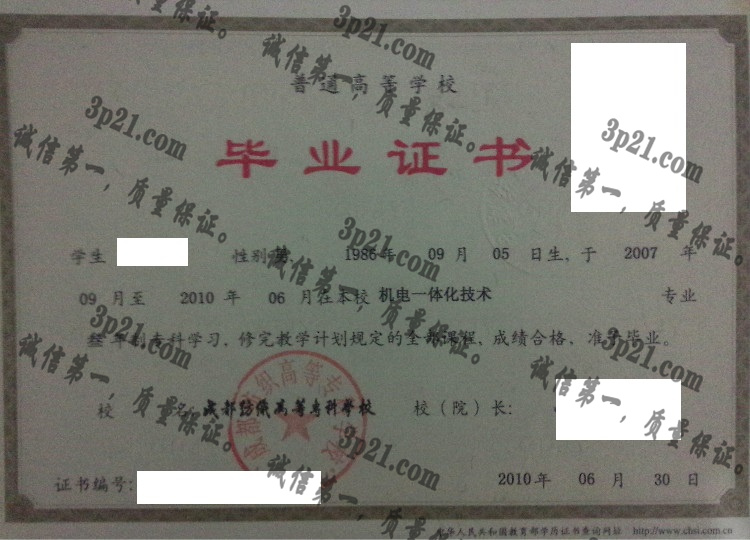 普通高等学校
毕业证书
学生 性别 男 1986年 09月 05日生,于 2007 年
09 月至 2010 年 06 月在本校 机电一体化技术 专业
叁年制专科学习,修完教学计划规定的全部课程、成绩合格、准予毕业。
校 名:成都纺织高等专科学校 校(院)长:
证书编号: 2010年 06 月 30 日
中华人民共和国教育部学历证书查询网址 http://www.chsi.com.cn
成都纺织高等专科学校
3p21.com
诚信第一,质量保证。
3p21.com
诚信第一,质量保证。
3p21.com
诚信第一,质量保证。
3p21.com
诚信第一,质量保证。
3p21.com
诚信第一,质量保证。
3p21.com
诚信第一,质量保证。
3p21.com
诚信第一,质量保证。
质量保证。